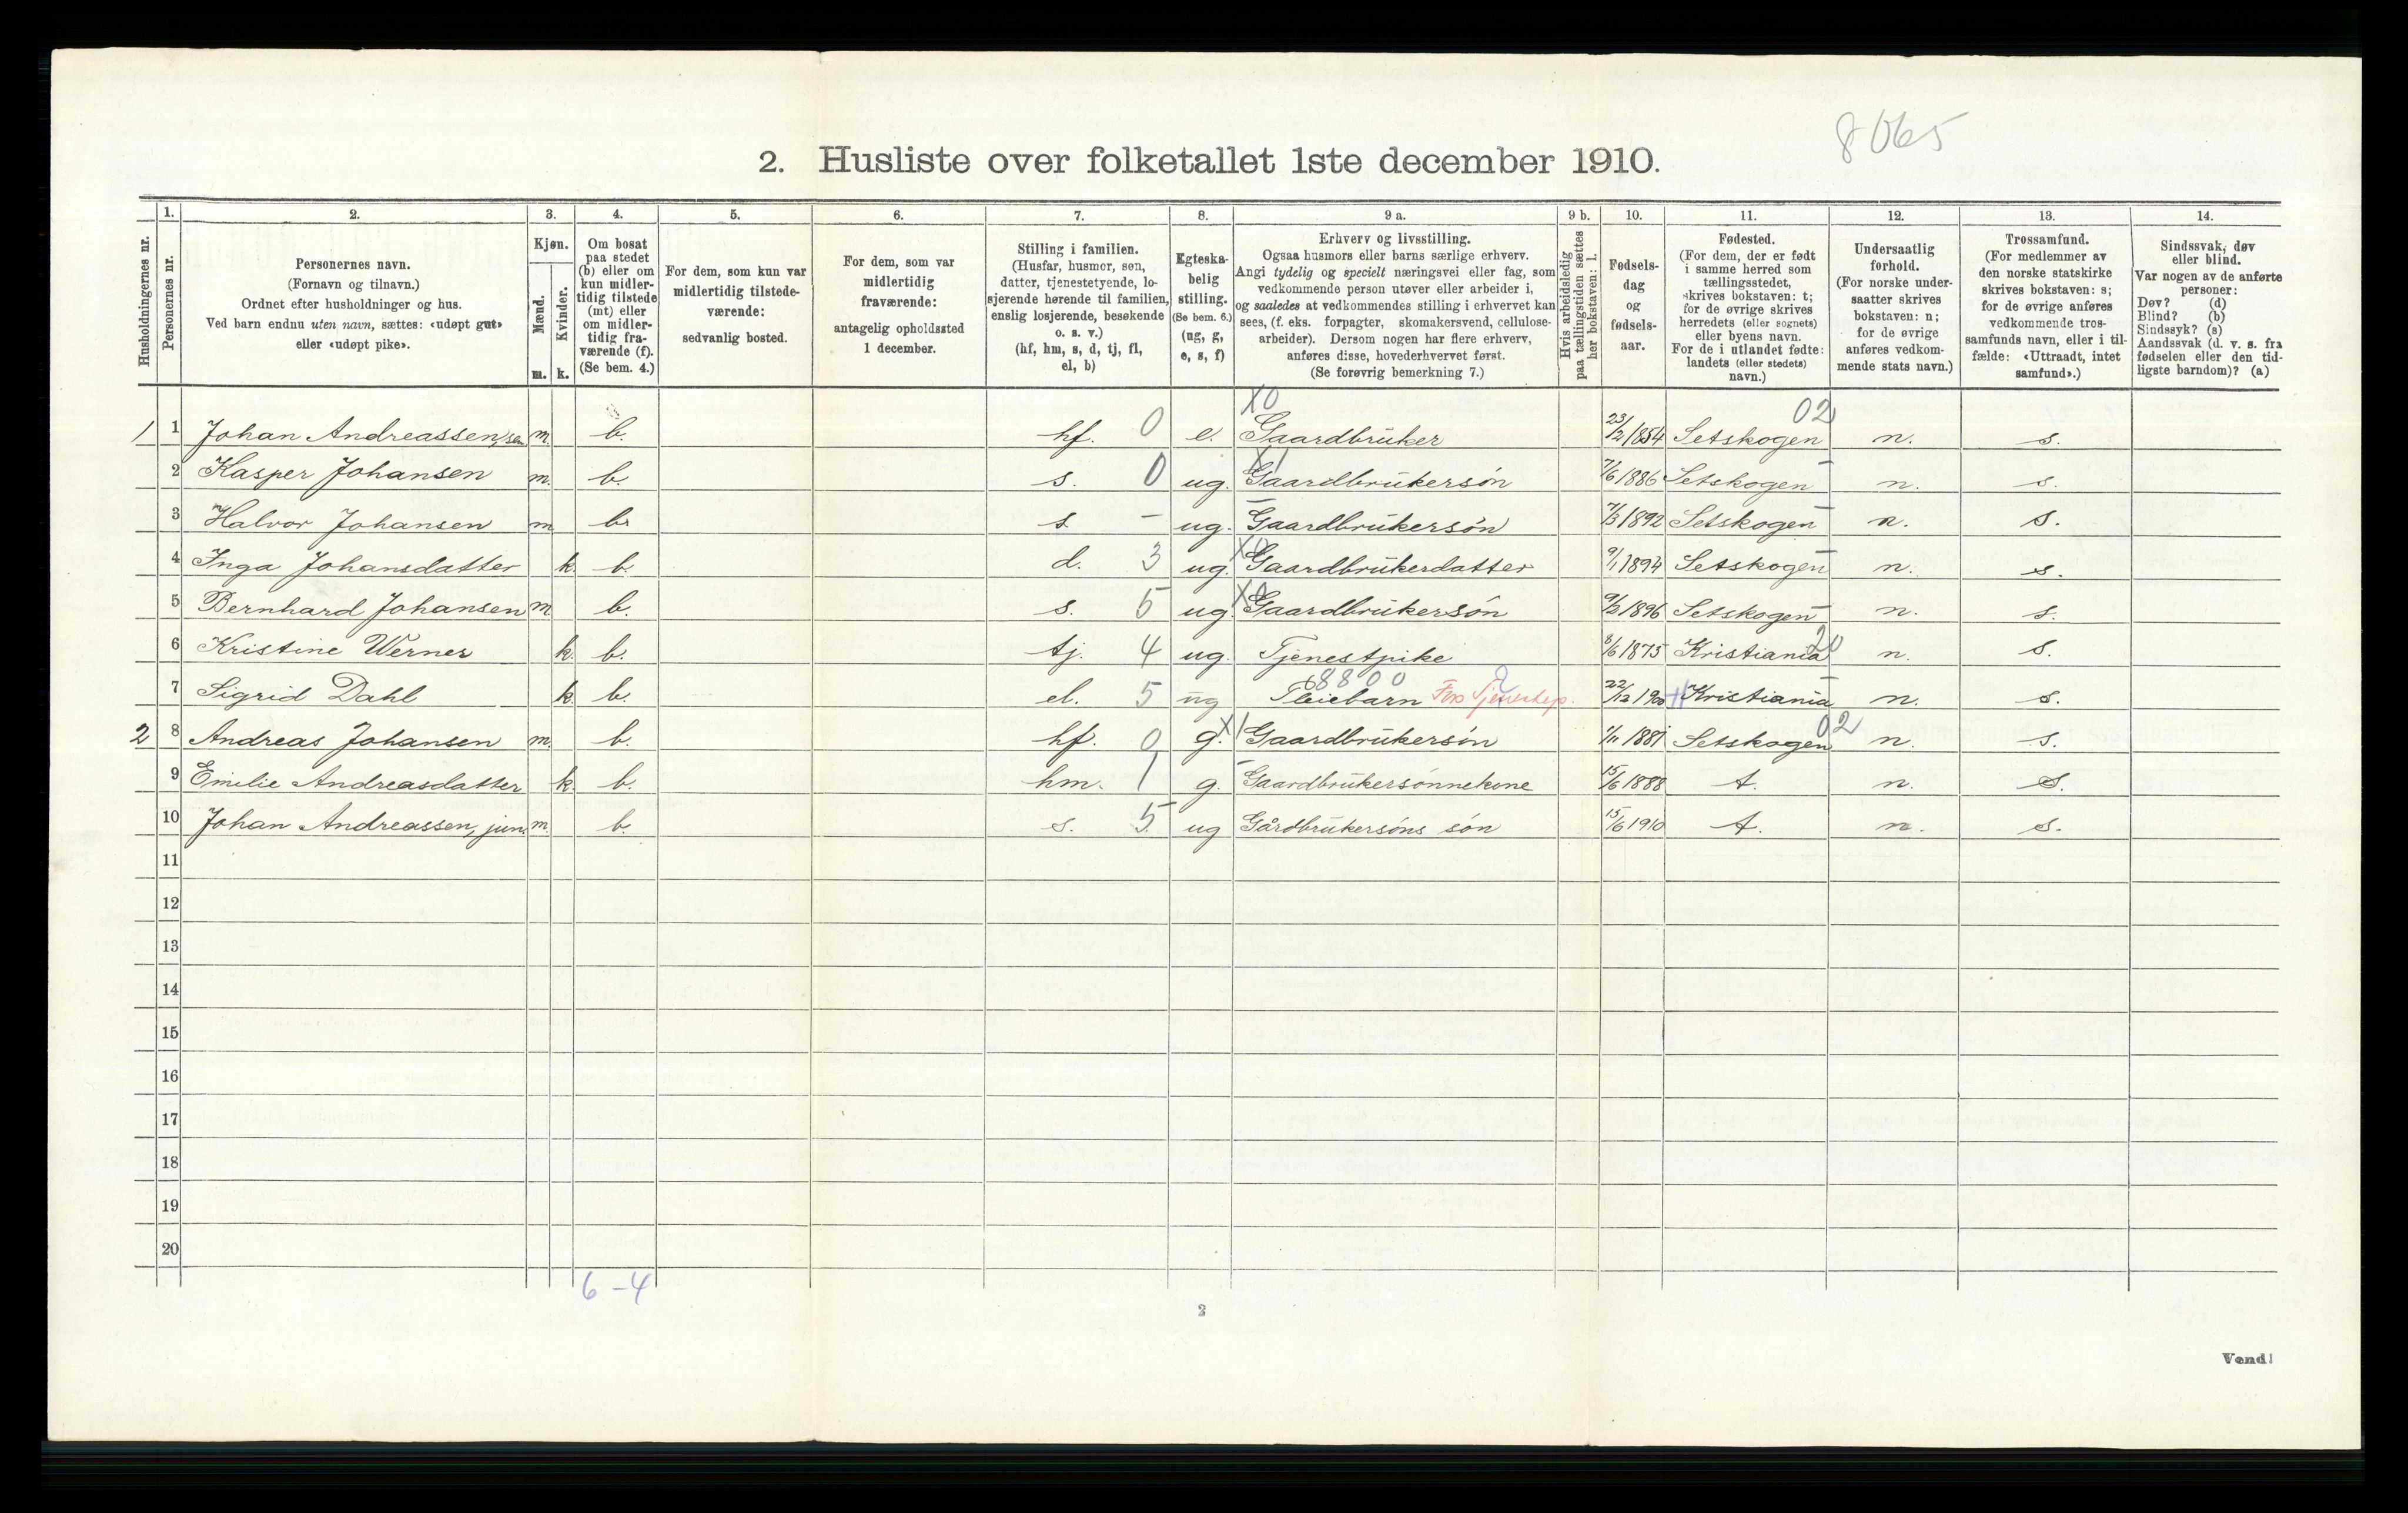 8065
2. Husliste over folketallet 1ste december 1910.
Husholdningernes nr.
1.
Personernes nr.
2.
Personernes navn.
(Fornavn og tilnavn.)
Ordnet efter husholdninger og hus.
Ved barn endnu uten navn, sættes: «udøpt gut»
eller «udøpt pike».
3.
Kjøn.
Mænd.
Kvinder.
m. k.
4.
Om bosat
paa stedet
(b) eller om
kun midler-
tidig tilstede
(mt) eller
om midler-
tidig fra-
værende (f).
(Se bem. 4.)
5.
For dem, som kun var
midlertidig tilstede-
værende:
sedvanlig bosted.
6.
For dem, som var
midlertidig
fraværende:
antagelig opholdssted
1 december.
7.
Stilling i familien.
(Husfar, husmor, søn,
datter, tjenestetyende, lo-
sjerende hørende til familien,
enslig losjerende, besøkende
o. s. v.)
(hf, hm, s, d, tj, fl,
el, b)
8.
Egteska-
belig
stilling.
(Se bem. 6.)
(ug, g,
e, s, f)
9 a.
Erhverv og livsstilling.
Ogsaa husmors eller barns særlige erhverv.
Angi tydelig og specielt næringsvei eller fag, som
vedkommende person utøver eller arbeider i,
og saaledes at vedkommendes stilling i erhvervet kan
sees, (f. eks. forpagter, skomakersvend, cellulose-
arbeider). Dersom nogen har flere erhverv,
anføres disse, hovederhvervet først.
(Se forøvrig bemerkning 7.)
9 b.
Hvis arbeidsledig
paa tællingstiden sættes
her bokstaven: l.
10.
Fødsels-
dag
og
fødsels-
aar.
11.
Fødested.
(For dem, der er født
i samme herred som
tællingsstedet,
skrives bokstaven: t;
for de øvrige skrives
herredets (eller sognets)
eller byens navn.
For de i utlandet fødte:
landets (eller stedets)
navn.)
12.
Undersaatlig
forhold.
(For norske under-
saatter skrives
bokstaven: n;
for de øvrige
anføres vedkom-
mende stats navn.)
13.
Trossamfund.
(For medlemmer av
den norske statskirke
skrives bokstaven: s;
for de øvrige anføres
vedkommende tros-
samfunds navn, eller i til-
fælde: «Uttraadt, intet
samfund».)
14.
Sindssvak, døv
eller blind.
Var nogen av de anførte
personer:
Døv? (d)
Blind? (b)
Sindssyk? (s)
Aandssvak (d. v. s. fra
fødselen eller den tid-
ligste barndom)? (a)
X0 02
1 1 Johan Andreassen, sen m. b. hf. 0 e. Gaardbruker 23/2 1854 Setskogen n. s.
X1
2 Kasper Johansen m. b. s. 0 ug. Gaardbrukersøn 7/6 1886 Setskogen n. s.
3 Halvor Johansen m b. s. – ug. Gaardbrukersøn 7/3 1892 Setskogen n. s.
4 Inga Johansdatter k. b. d. 3 ug. X0 Gaardbrukerdatter 9/1 1894 Setskogen n. s.
5 Bernhard Johansen m b. s. 5 ug. X0 Gaardbrukersøn 9/3 1896 Setskogen n. s.
6 Kristine Werner k. b. tj. 4 ug. Tjenestpike 8/6 1875 Kristiania 20 n. s.
8800
7 Sigrid Dahl k. b. el. 5 ug Pleiebarn 22/12 1900 Kristiania n. s.
02
2 8 Andreas Johansen m. b. hf. 0 g. X1 Gaardbrukersøn 1/11 1881 Setskogen n. s.
9 Emilie Andreasdatter k. b. hm. 1 g. Gaardbrukersønnekone 15/6 1888 t. n. s.
10 Johan Andreassen, jun. m. b. s. 5 ug Gårdbrukersøns søn 15/6 1910 t. n. s.
11
12
13
14
15
16
17
18
19
20
6 – 4
2
Vend!